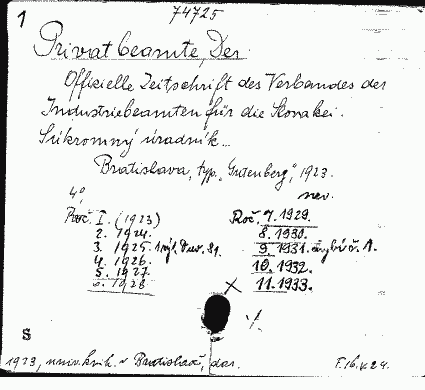 1
74725
Privatbeamte, Der
Offizielle Zeitschrift des Verbandes der
Industriebeamten für die Slovakei.
Súkromný úradník...
Bratislava, typ. „Gutenberg", 1923.
4°, nev.
Roč. I. (1923)
2. 1924.
3. 1925.
4. 1926.
5. 1927
6. 1928
Roč. 7. 1929.
8. 1930.
9. 1931. chybí č. 1.
10. 1932.
11. 1933.
S
1923, univ. knih. v Bratislavě, dar.
F.16.V.24.